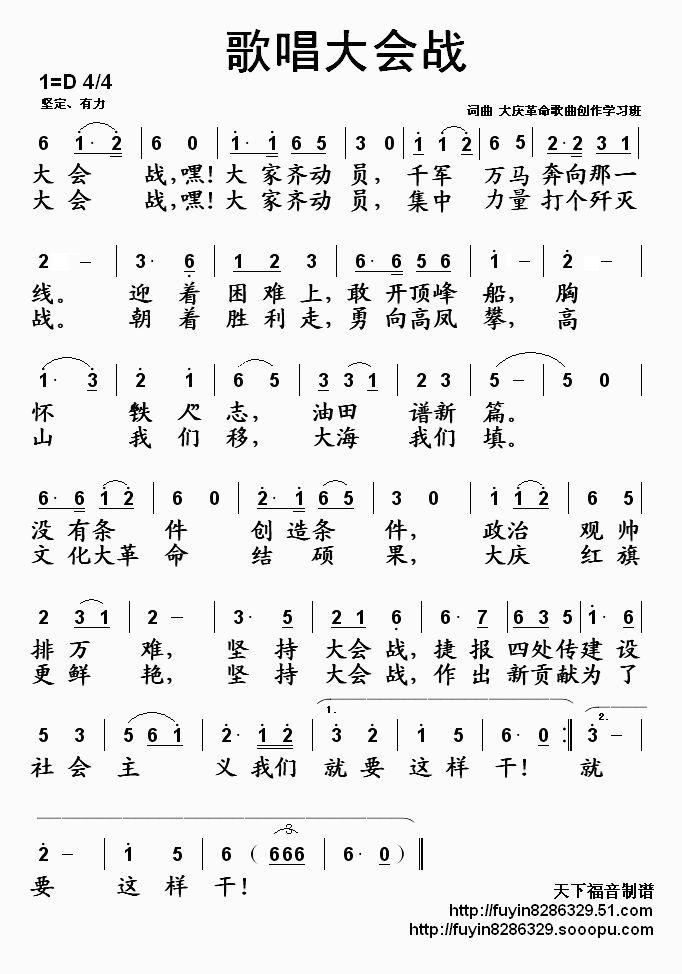 歌唱大会战
1=D 4/4
坚定、有力
词曲 大庆革命歌曲创作学习班
6 1· 2 | 6 0 | 1· 1 6 5 | 3 0 | 1 1 2 | 6 5 | 2·2 3 1 |
大会 战,嘿!大家齐动员,千军 万马奔向那一
大会 战,嘿!大家齐动员,集中 力量打个歼灭
2 – | 3· 6 | 1 2 3 | 6· 6 5 6 | 1 – | 2 – |
线。 迎着困难上,敢开顶峰船,胸
战。 朝着胜利走,勇向高凤攀,高
1· 3 | 2 1 | 6 5 | 3 3 1 | 2 3 | 5 – | 5 0 |
怀 “铁人”志, 油田 谱新篇。
山 我们移, 大海 我们填。
6· 6 1 2 | 6 0 | 2· 1 6 5 | 3 0 | 1 1 2 | 6 5 |
没有条 件 创造条 件, 政治 观帅
文化大革命 结硕 果, 大庆 红旗
2 3 1 | 2 – | 3· 5 | 2 1 6 | 6· 7 | 6 3 5 | 1· 6 |
排万 难, 坚持大会战,捷报四处传建设
更鲜 艳, 坚持大会战,作出新贡献为了
1. 2.
5 3 | 5 6 1 | 2· 1 2 | 3 2 | 1 5 | 6· 0 :‖ 3 – |
社会主 义我们就要这样干! 就
3
2 – | 1 5 | 6 ( 666 | 6· 0 ) ‖
要 这样干!
天下福音制谱
http://fuyin8286329.51.com/
http://fuyin8286329.sooopu.com/